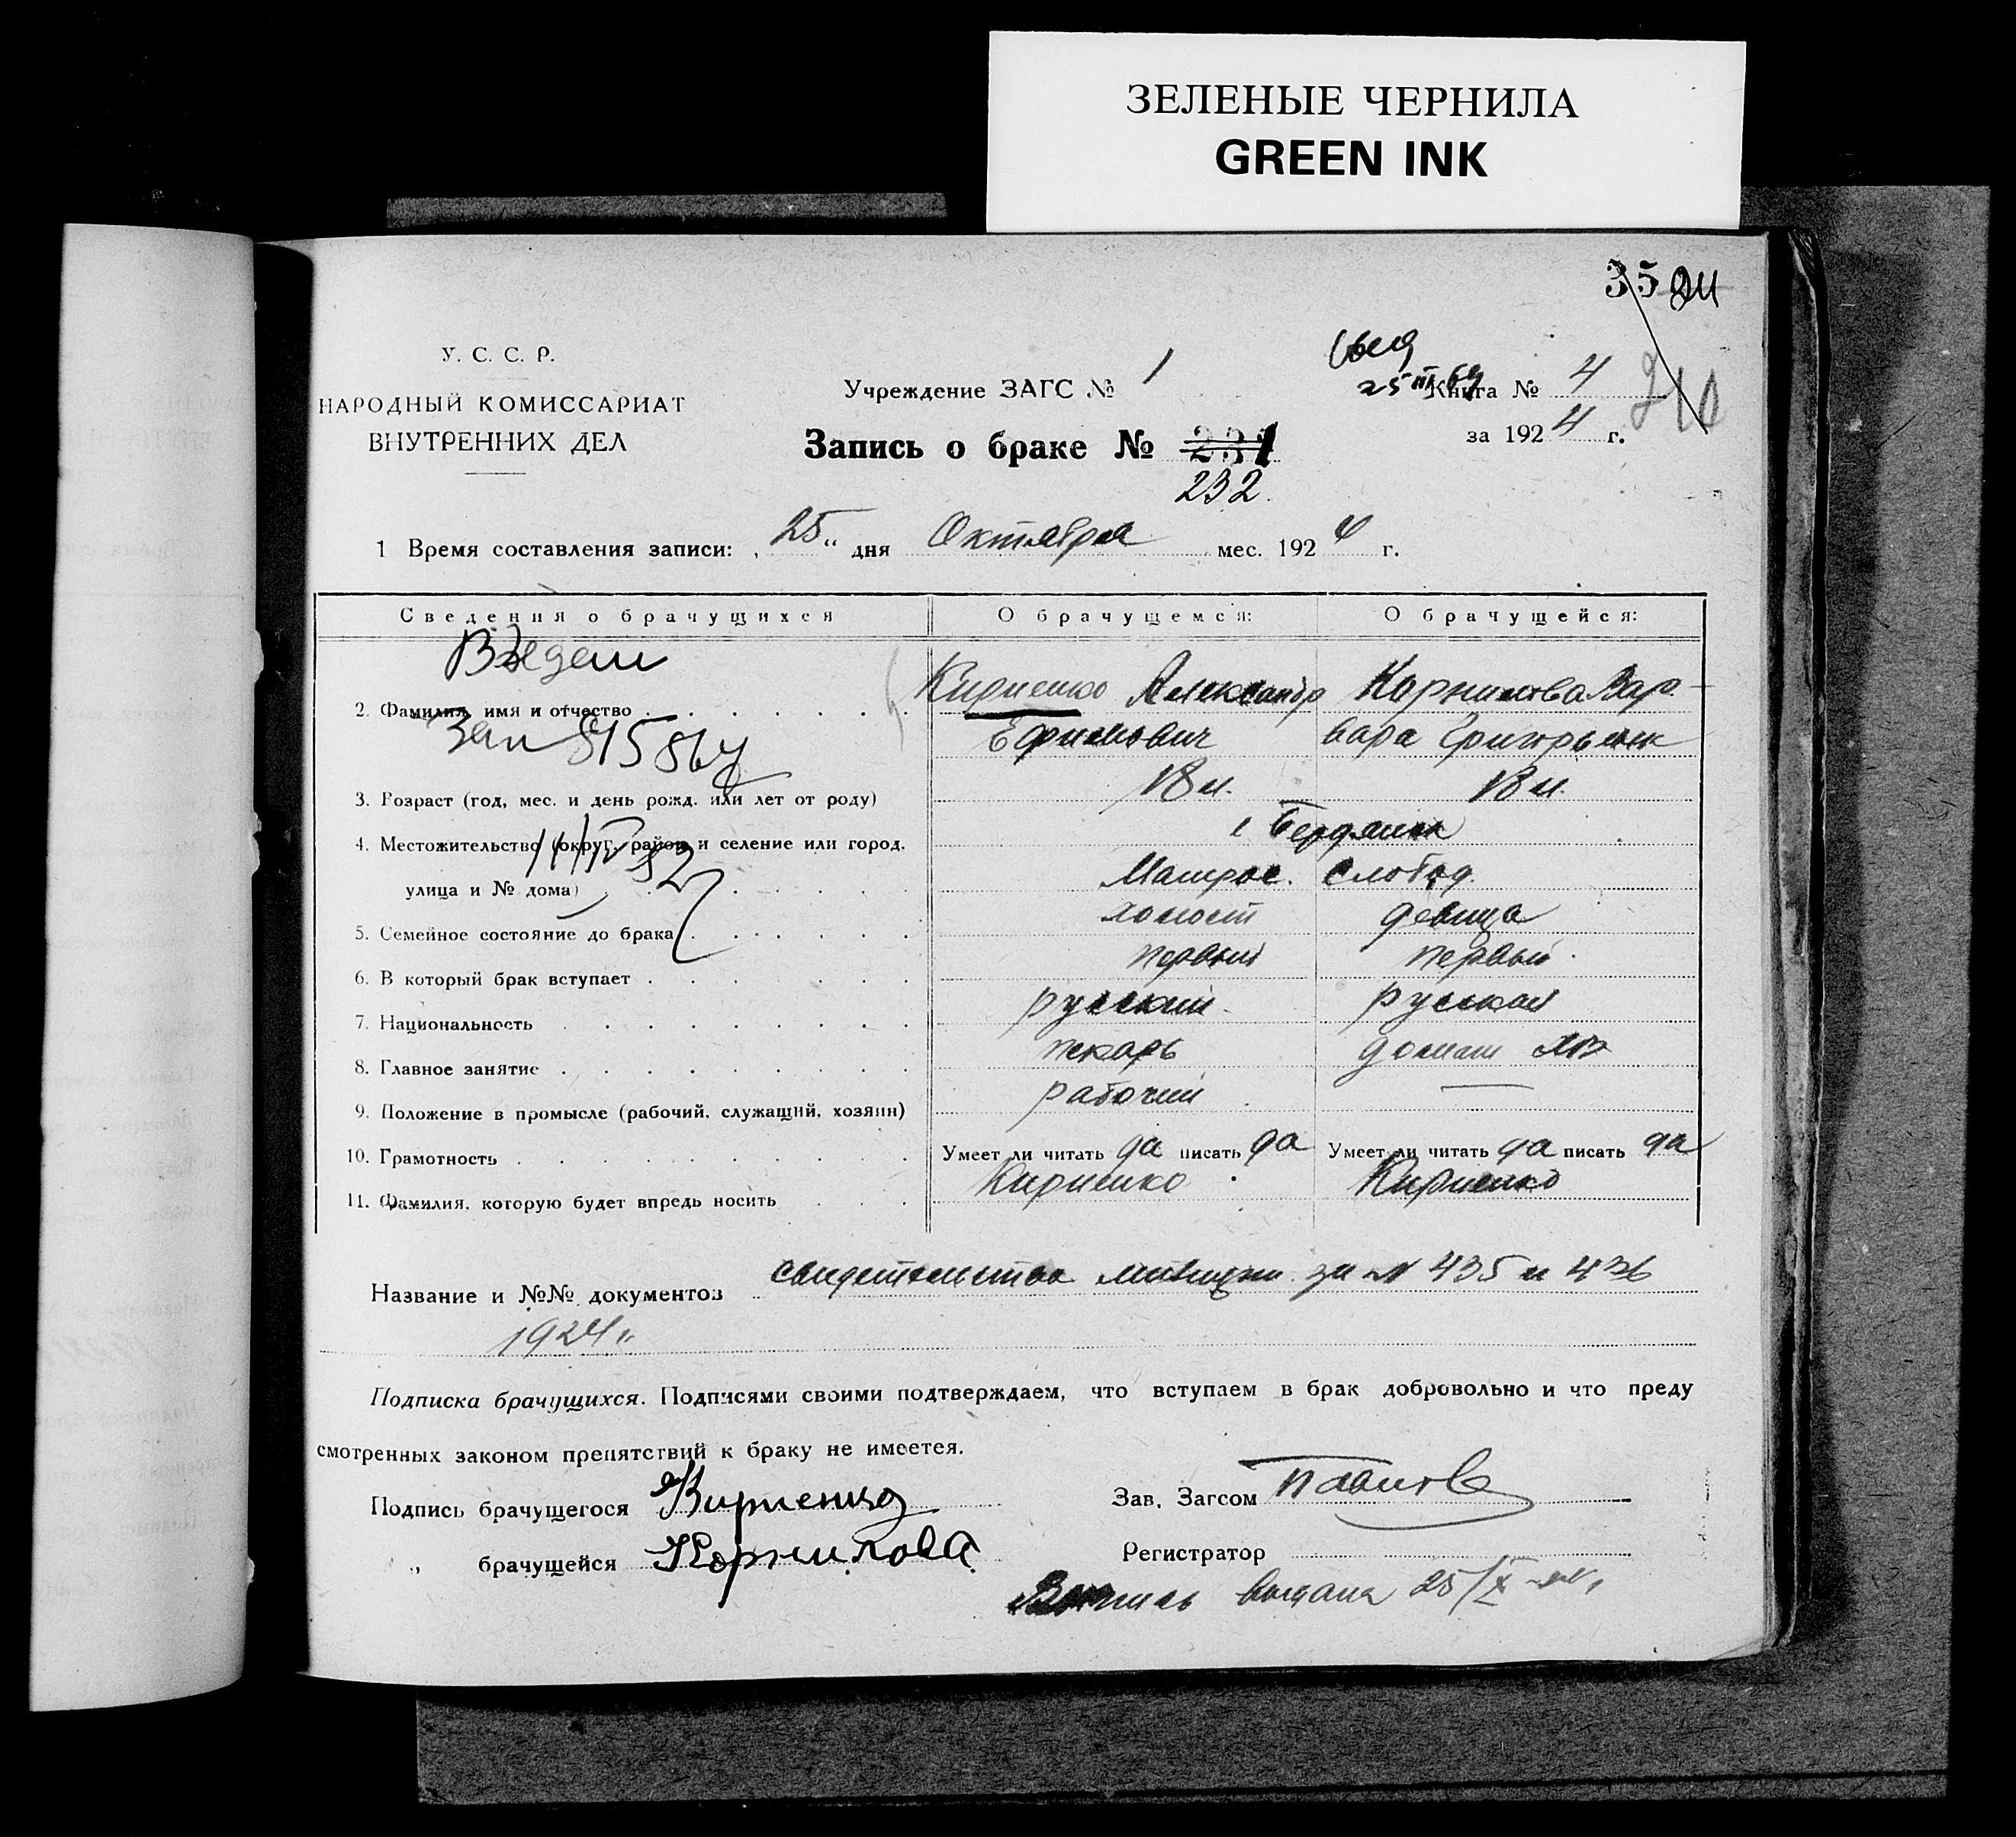 ЗЕЛЕНЫЕ ЧЕРНИЛА
GREEN INK
35
У. С. С. Р.
НАРОДНЫЙ КОМИССАРИАТ
ВНУТРЕННИХ ДЕЛ
Учреждение ЗАГС № 1
25 III 64
Книга № 4
за 1924 г.
Запись о браке № 231
232
1 Время составления записи: „25“ дня Октября мес. 1924 г.
Сведения о брачущихся О брачущемся: О брачущейся:
2. Фамилия, имя и отчество Кириенко Александр Корнилова Вар-
Ефимович вара Григорьевн
3. Возраст (год, мес. и день рожд. или лет от роду) 18 л. 18 л.
4. Местожительство (округ, район и селение или город, г Бердянск
улица и № дома) Матрос. слобод.
5. Семейное состояние до брака холост девица
6. В который брак вступает первый первый
7. Национальность русский русская
8. Главное занятие пекарь домаш хоз
9. Положение в промысле (рабочий, служащий, хозяин) рабочий —
10. Грамотность Умеет ли читать да писать да Умеет ли читать да писать да
11. Фамилия, которую будет впредь носить Кириенко Кириенко
Название и №№ документов свидетельства милиции за № 435 и 436
1924 г.
Подписка брачущихся. Подписями своими подтверждаем, что вступаем в брак добровольно и что преду
смотренных законом препятствий к браку не имеется.
Подпись брачущегося Кириенко Зав. Загсом Павлов
„ брачущейся Корнилова Регистратор
выдана 25/X